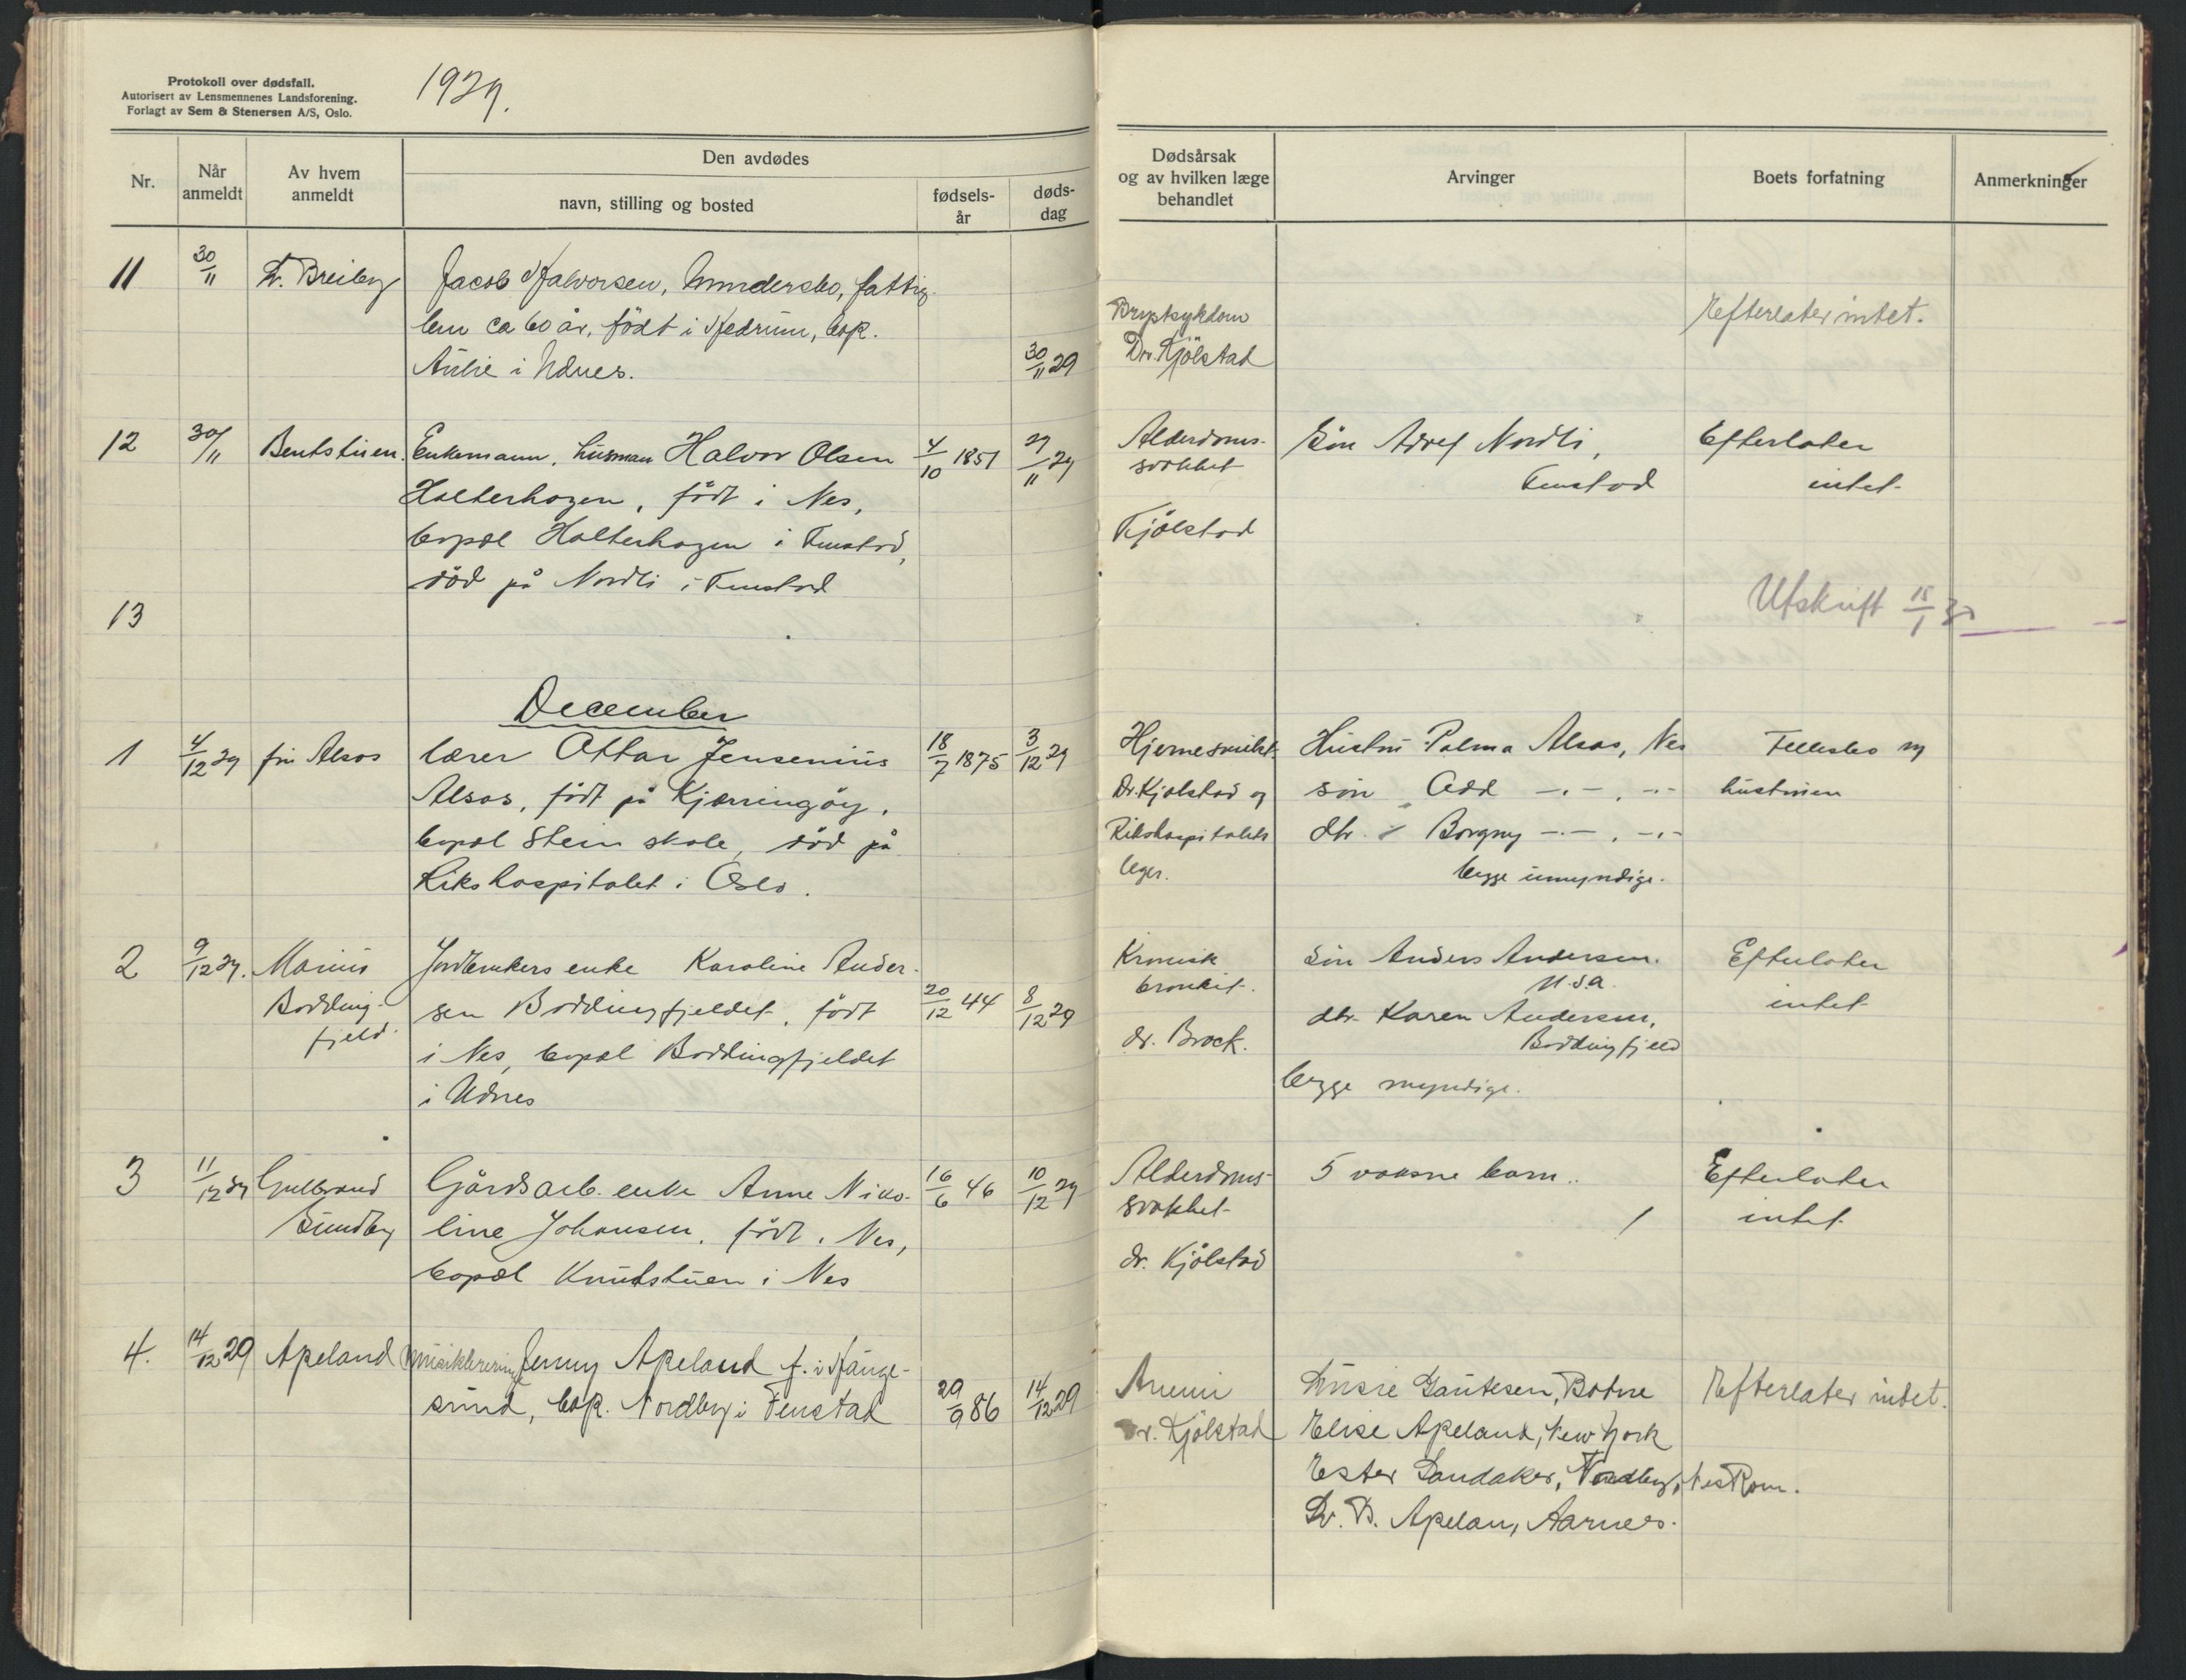 Protokoll over dødsfall.
Autorisert av Lensmennenes Landsforening.
Forlagt av Sem & Stenersen A/S, Oslo.
1929.
Nr.
Når anmeldt
Av hvem anmeldt
Den avdødes
navn, stilling og bosted
fødsels-år
døds-dag
Dødsårsak og av hvilken læge behandlet
Arvinger
Boets forfatning
Anmerkninger
11 30/11 Breiby Jacob Halvorsen, fattig-
lem ca 60 år, født i Hedrum, bop.
Aulie i Udnes. 30/11 29
Brystsykdom
Dr. Kjölstad
Efterlater intet.
12 30/11 Bentstuen. Enkemann, husman Halvor Olsen 4/10 1851 29/11 29
Holterhagen, født i Nes,
bopæl Holterhagen i Fenstad,
död på Nordli i Fenstad
Alderdoms-
svakhet
Kjölstad
Sön Nordli,
Fenstad
Efterlater
intet
13
Utskrift 15/1 30
December
1 4/12 29 fru Alsos lærer Ottar Jensenius 18/7 1875 3/12 29
Alsos, født på Kjærringöy,
bopæl Stein skole, död på
Rikshospitalet i Oslo.
Dr. Kjølstad og
Rikshospitalets
leger.
Hustru Palma Alsos, Nes
sön Odd -.-, -.-
dtr. Borgny -.-, -.-
begge umyndige.
Fellesbo m
hustruen
2 9/12 29. Marius
Bodding-
fjeld.
Jordbrukers enke Karoline Ander-
sen Boddingfjeldet, født 20/12 44 8/12 29
i Nes, bopæl Boddingfjeldet
i Udnes
Kronisk
bronkit.
dr. Brock.
Sön Anders Andersen.
U.S.a.
dtr. Karen Andersen,
Boddingfjeld
begge myndige.
Efterlater
intet
3 11/12 29 Gulbrand
Sundby
Gårdsarb. enke Anne Niko- 16/6 46 10/12 29
line Johansen, født i Nes,
bopæl Knutstuen i Nes
Alderdoms-
svakhet
dr. Kjölstad
5 voksne barn.
Efterlater
intet
4. 14/12 29 Apeland Musiklærerinne Jenny Apeland f. i Hauge-
sund, bop. Nordberg i Fenstad 29/9 86 14/12 29
Anemi
Dr. Kjölstad
Gautesen, Botne
Elise Apeland, New York
Ester Sandaker, Nordberg, Nes Rom.
B. Apelan, Aarnes.
Efterlater intet.